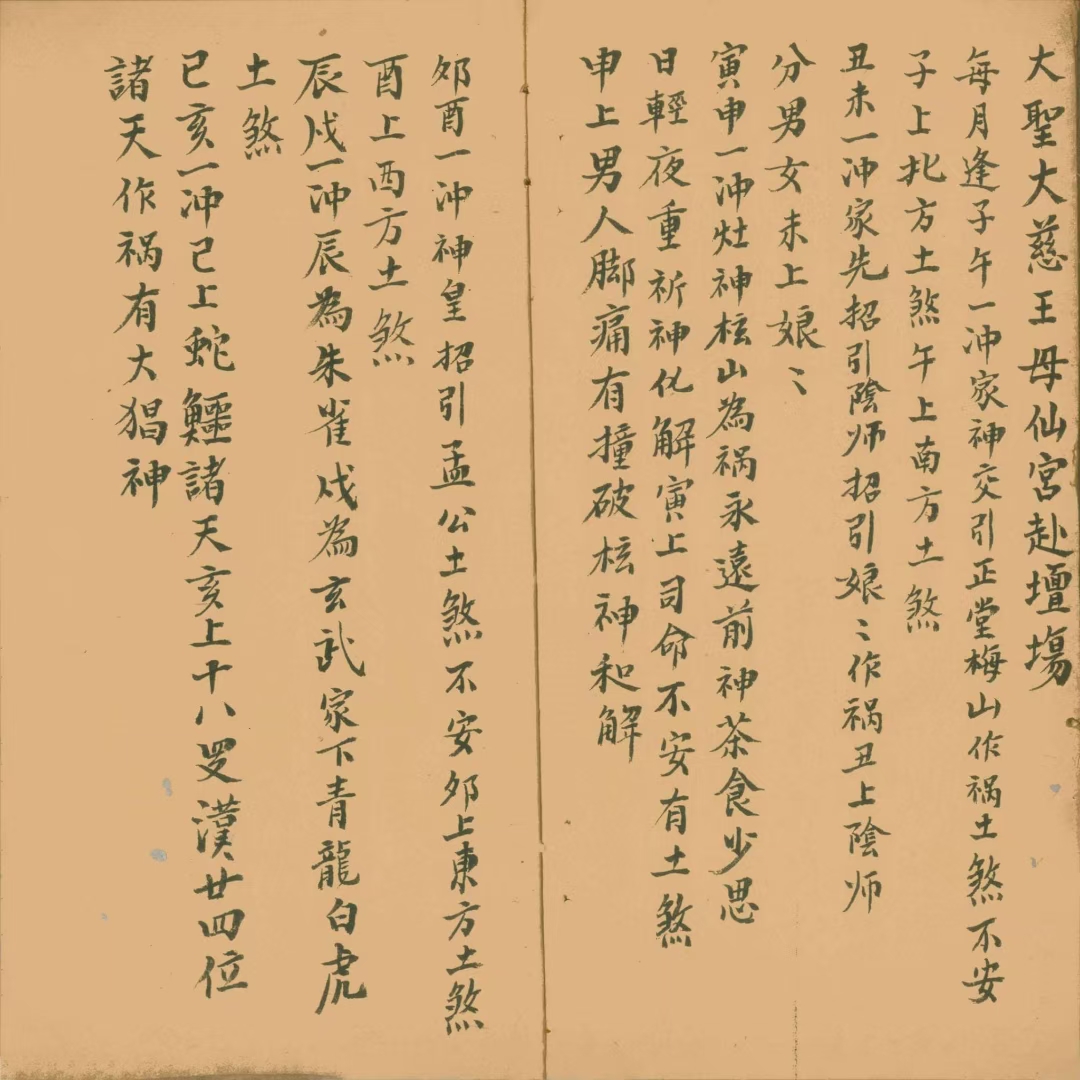 大聖大慈王母仙宮赴壇場
每月逢子午一冲家神交引正堂梅山作祸土煞不安
子上北方土煞午上南方土煞
丑未一冲家先招引陰师招引娘〻作祸丑上陰师
分男女未上娘〻
寅申一冲灶神枟山為祸永遠前神茶食少思
日輕夜重祈神化解寅上司命不安有土煞
申上男人脚痛有撞破枟神和解
夘酉一冲神皇招引孟公土煞不安夘上東方土煞
酉上西方土煞
辰戌一冲辰為朱雀戌為玄武家下青龍白虎
土煞
巳亥一冲巳上蛇鱷諸天亥上十八罗漢廿四位
諸天作祸有大猖神